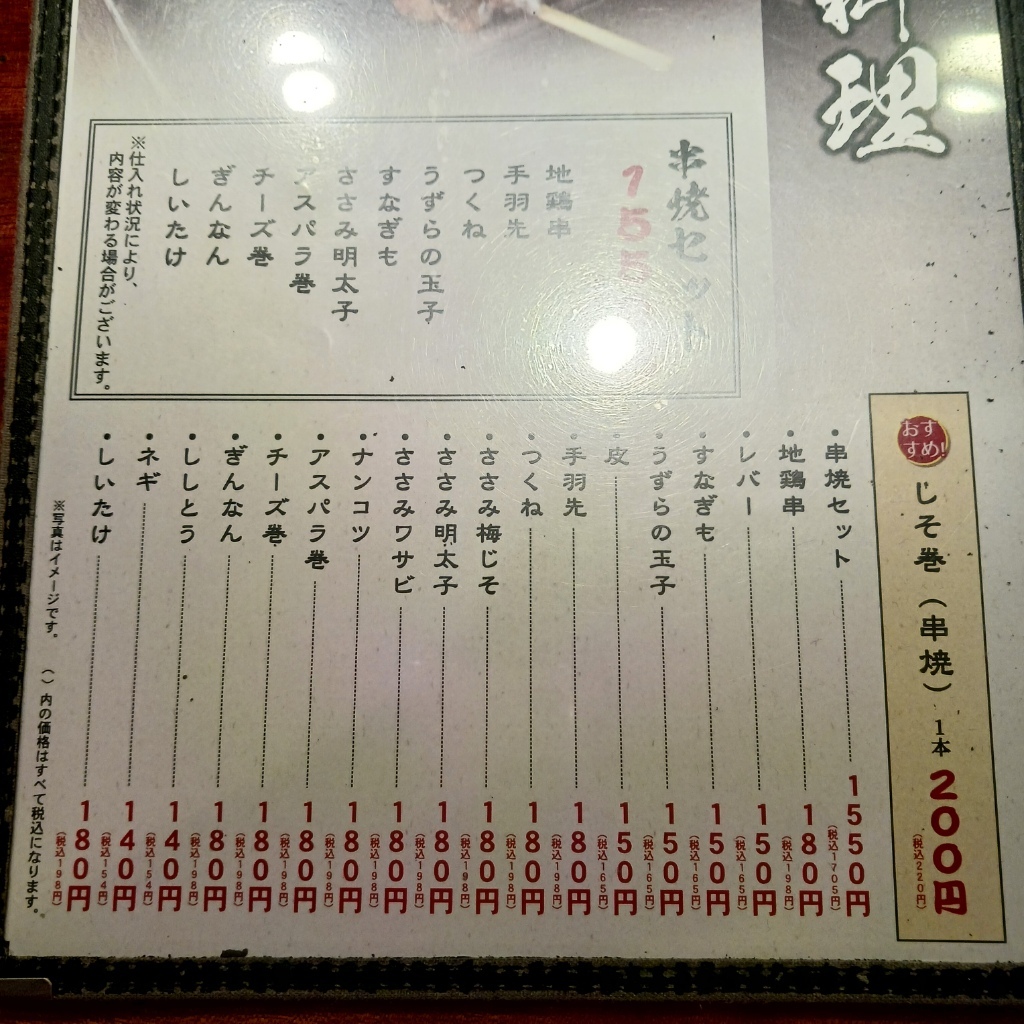 料理
串焼セット
155
地鶏串
手羽先
つくね
うずらの玉子
すなぎも
ささみ明太子
アスパラ巻
チーズ巻
ぎんなん
しいたけ
※仕入れ状況により、
内容が変わる場合がございます。
おすすめ!
じそ巻（串焼）1本 200円
（税込220円）
・串焼セット 1550円（税込1705円）
・地鶏串 180円（税込198円）
・レバー 150円（税込165円）
・すなぎも 150円（税込165円）
・うずらの玉子 150円（税込165円）
・皮 150円（税込165円）
・手羽先 180円（税込198円）
・つくね 180円（税込198円）
・ささみ梅じそ 180円（税込198円）
・ささみ明太子 180円（税込198円）
・ささみワサビ 180円（税込198円）
・ナンコツ 180円（税込198円）
・アスパラ巻 180円（税込198円）
・チーズ巻 180円（税込198円）
・ぎんなん 180円（税込198円）
・ししとう 140円（税込154円）
・ネギ 140円（税込154円）
・しいたけ 180円（税込198円）
※写真はイメージです。（）内の価格はすべて税込になります。